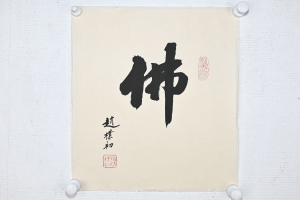 佛
趙樸初